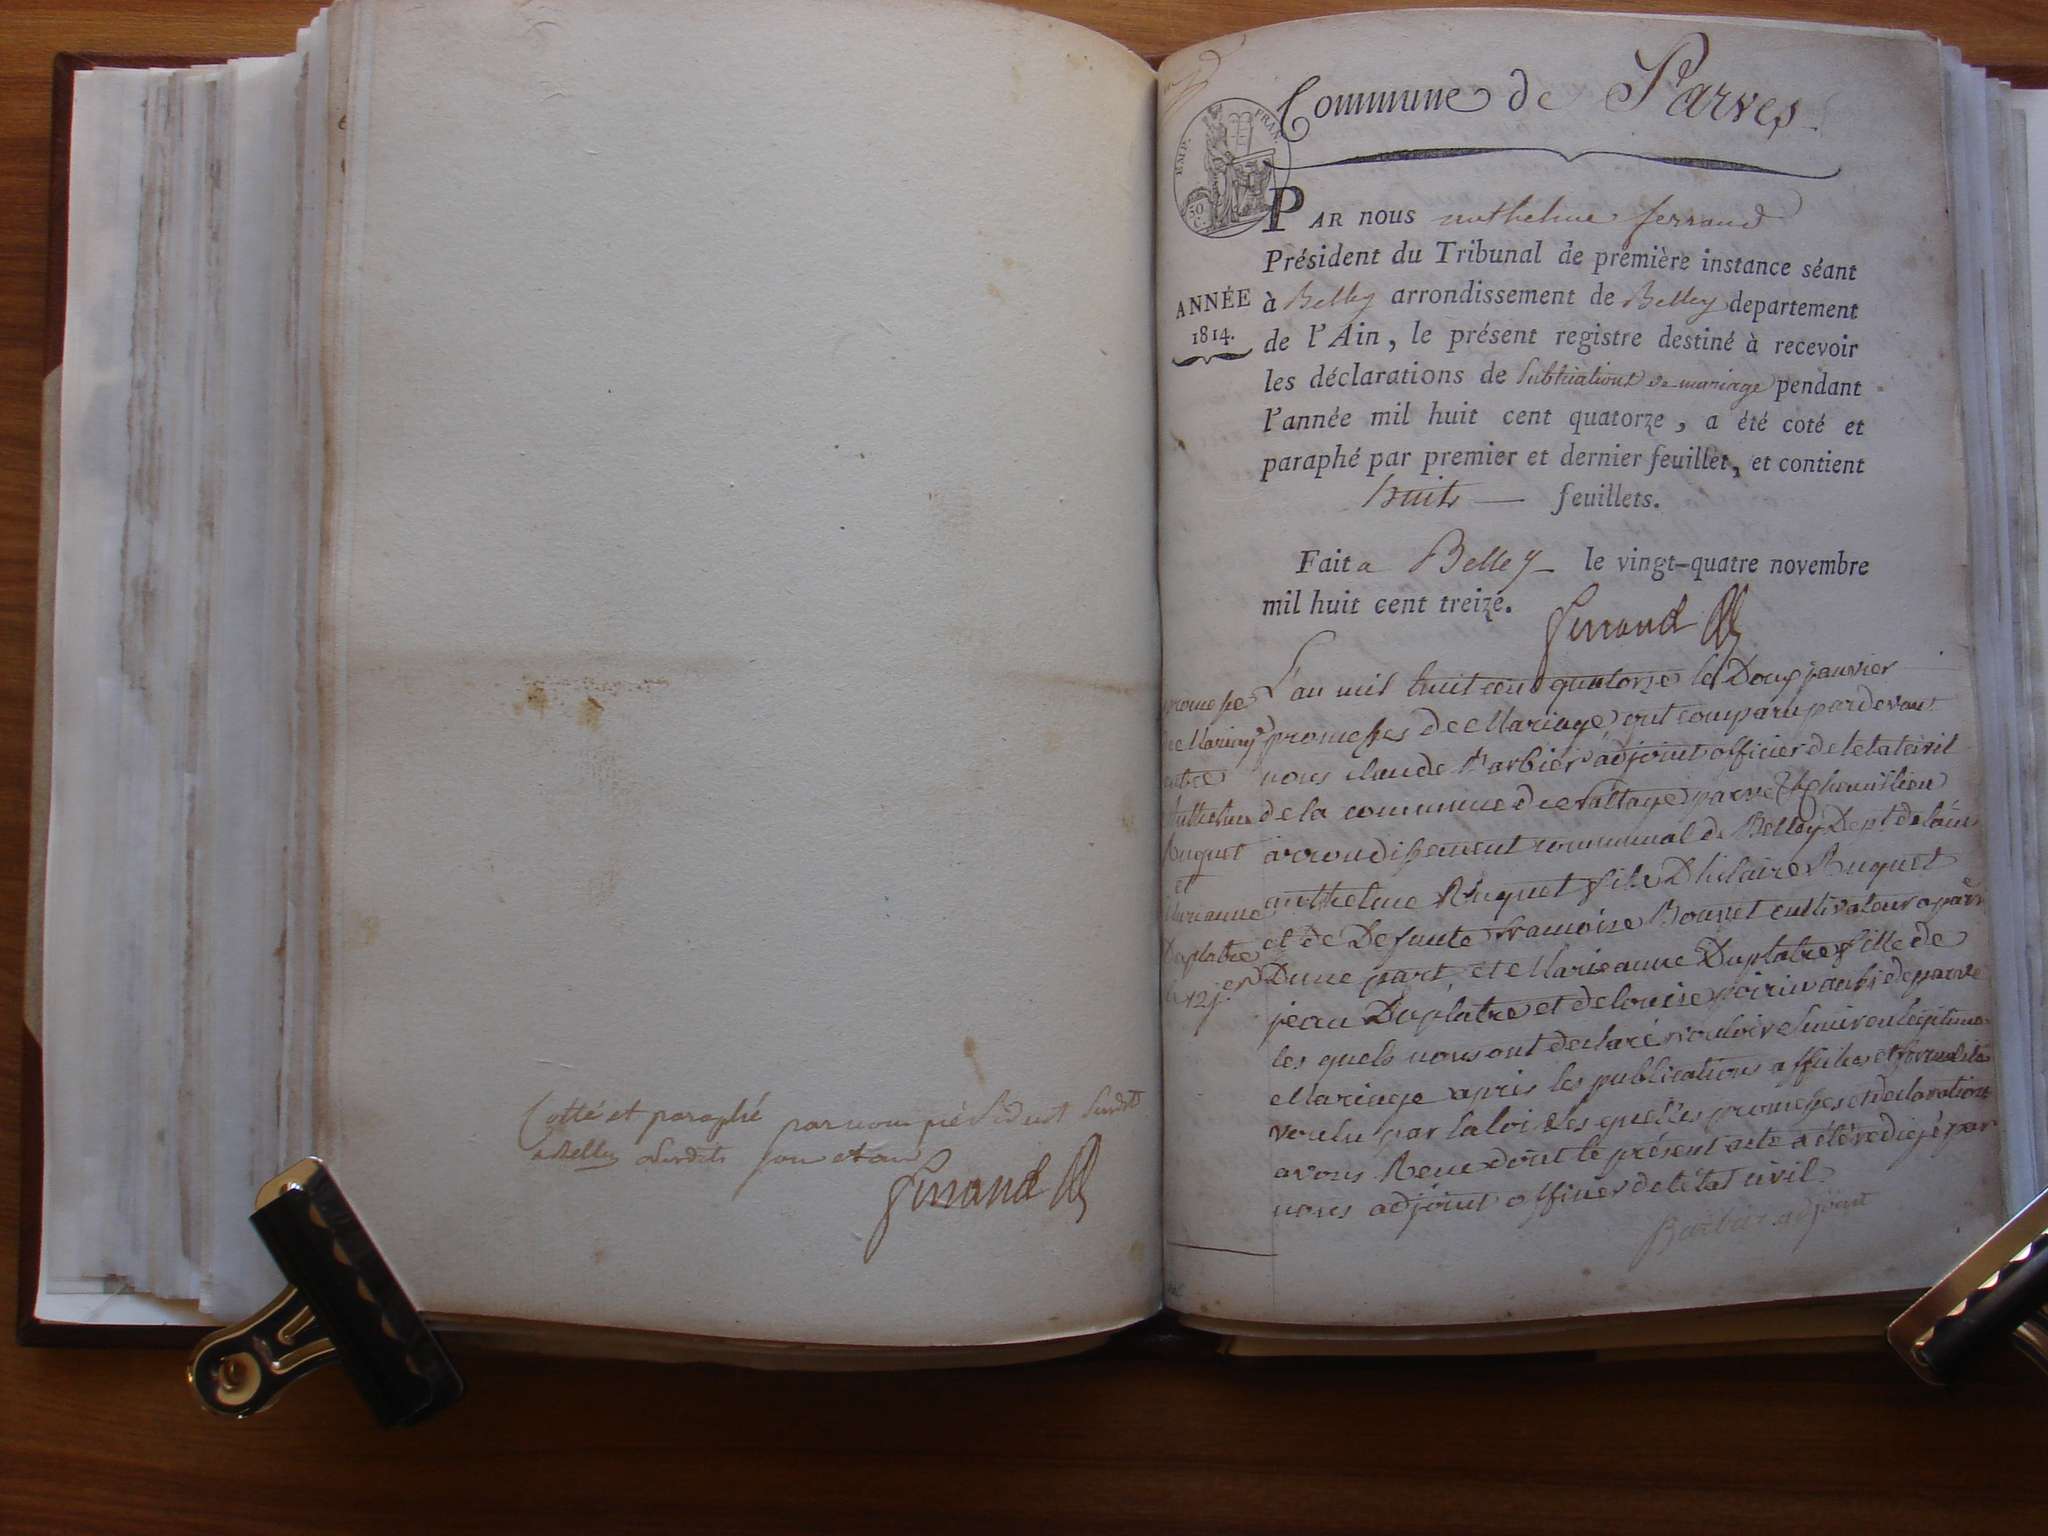 Cotté et paraphé par nous président susdit
a Belley susdits jour et an
Ferrand
Commune de Parves
EMP. FRAN.
50 C.
PAR nous anthelme ferrand
Président du Tribunal de première instance séant
à Belley arrondissement de Belley departement
de l'Ain, le présent registre destiné à recevoir
les déclarations de publications de mariage pendant
l'année mil huit cent quatorze, a été coté et
paraphé par premier et dernier feuillet, et contient
huit feuillets.
ANNÉE
1814.
Fait a Belley le vingt-quatre novembre
mil huit cent treize.
Ferrand
promesse
de Mariage
entre
Anthelme
Ruguet
et
Marieanne
Duplatre
L'an mil huit cent quatorze le Douze janvier
promesses de Mariage, ont comparu pardevant
nous claude Barbier adjoint officier de letat civil
de la commune de parve
arrondissement communal de Belley Dept de lain
anthelme Ruguet fils D hilaire Ruguet
et de Defunte francoise Bonnet cultivateur a parve
Dune part, et Marieanne Duplatre fille de
jean Duplatre et de louise poirin aussi de parve
les quels nous ont declaré vouloir sunir en légitime
Mariage apres les publications affiches et formalités
voulu par la loi des quelles promesses et declaration
avons Recu dont le présent acte a été redigé par
nous adjoint officier de létat civil
Barbier adjoint